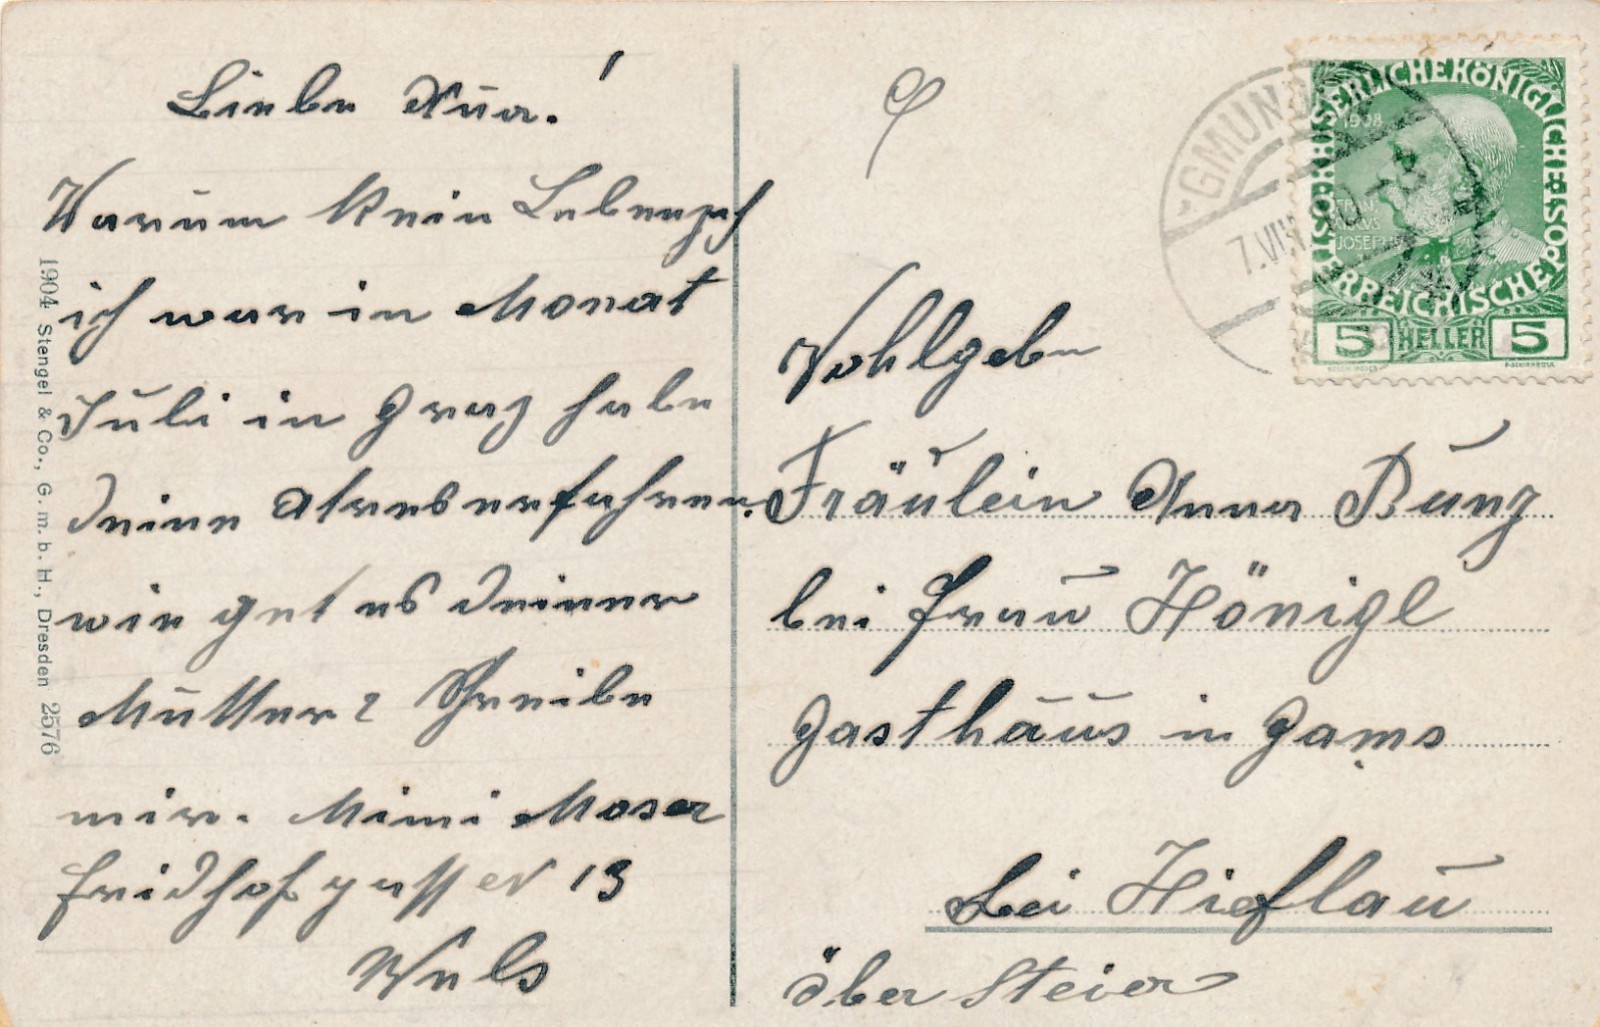 Liebe Nua!
Warum kein Lebenzeich
ich war in Monat
Juli in Graz habe
deine Atres erfahren.
wie get es deiner
Mutter? Schreibe
mir. Mimi Moser
Fridhofgasse N 13
Wels
1904 Stengel & Co., G. m. b. H., Dresden 2576
GMUND
7.VII
KAISERLICHEKÖNIGLICHE ÖSTERREICHISCHE POST
1908
FRANZ JOSEPH
5 HELLER 5
Wohlgeb
Fräulein Anna Bunz
bei Frau Hönigl
Gasthaus in Gams
bei Hieflau
über Steier